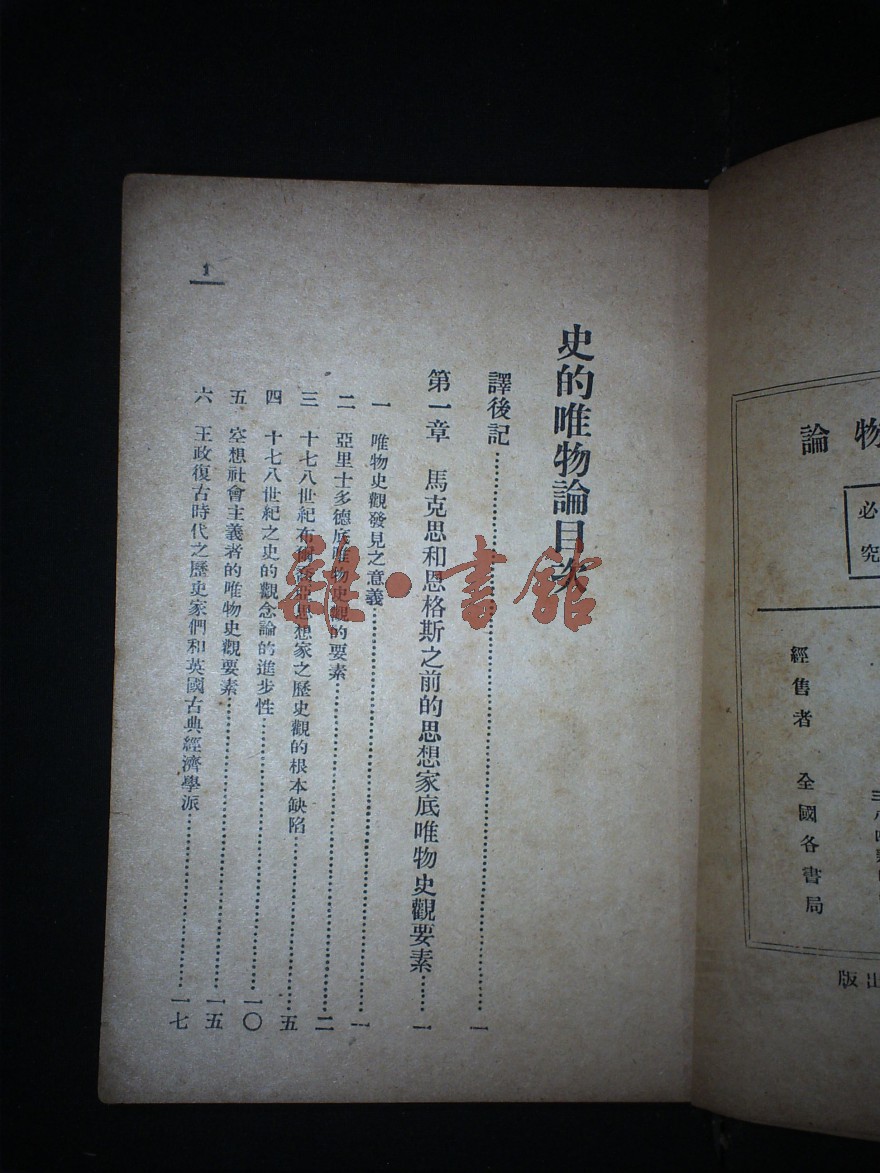 物論
必究
經售者 全國各書局
出版
史的唯物論目次
譯後記…………一
第一章 馬克思和恩格斯之前的思想家底唯物史觀要素……一
一 唯物史觀發見之意義…………一
二 亞里士多德底唯物史觀的要素…………二
三 十七八世紀布爾喬亞思想家之歷史觀的根本缺陷…………五
四 十七八世紀之史的觀念論的進步性…………一〇
五 空想社會主義者的唯物史觀要素…………一五
六 王政復古時代之歷史家們和英國古典經濟學派…………一七
1
雜·書館